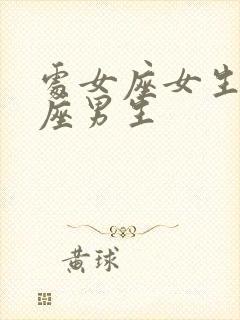 處女座女生
座男生
黃球